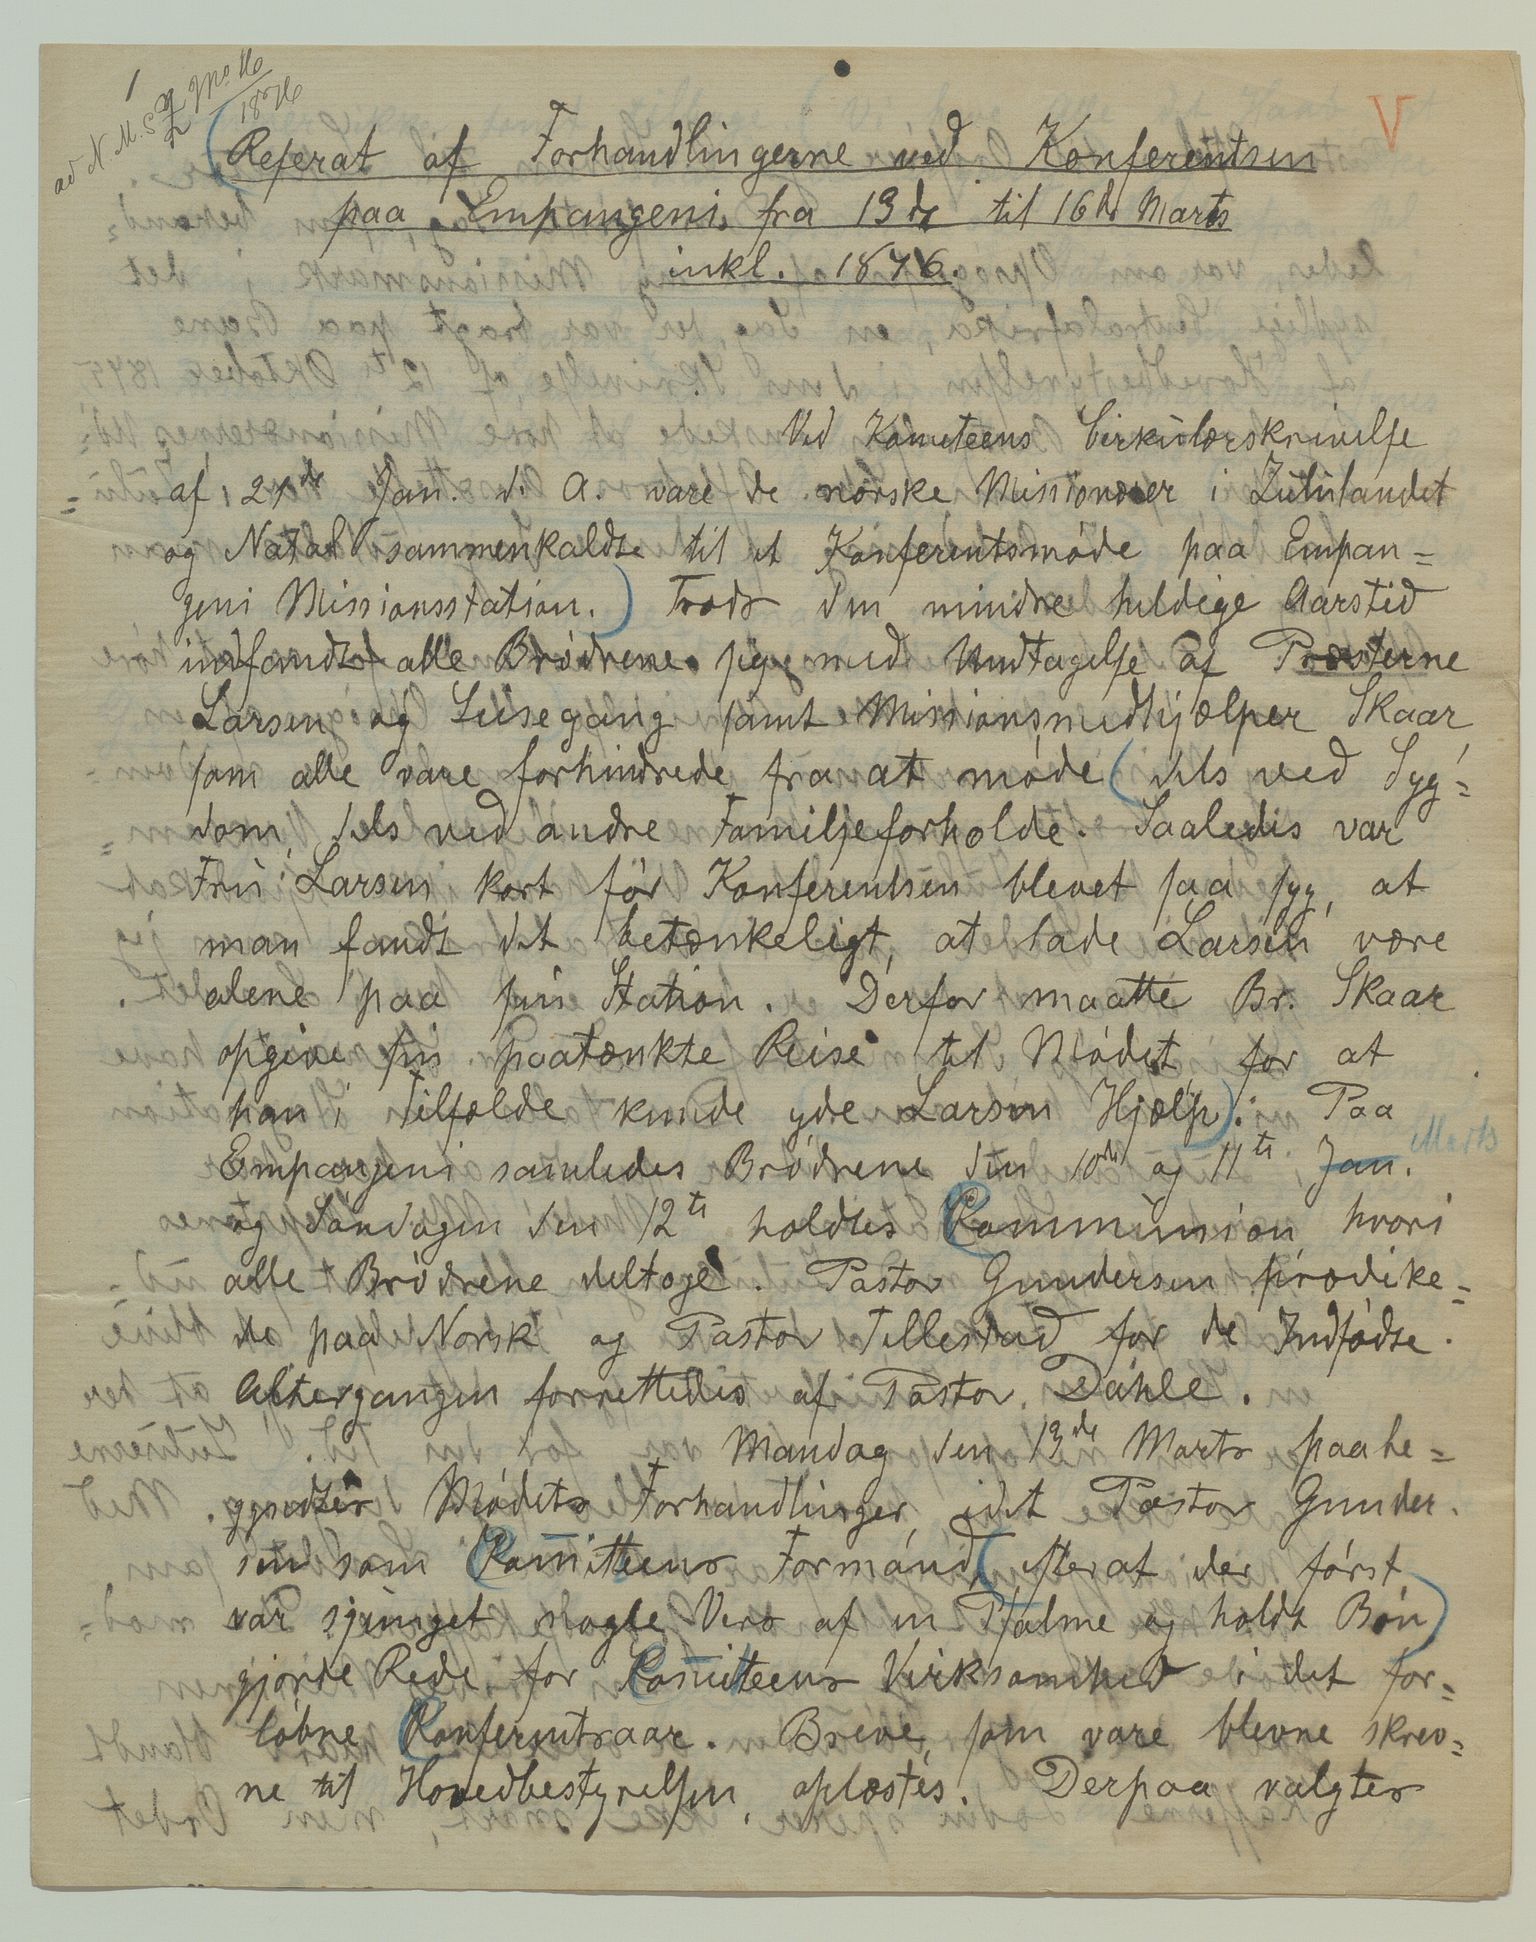 1
ad N. M. S. No 16
1876
V
Referat af Forhandlingerne ved Konferentsen
paa Empangeni fra 13de til 16de Marts
inkl. 1876.
Ved Komiteens Cirkulærskrivelse
af 21de Jan. d. A. vare de norske Missionærer i Zululandet
og Natal sammenkaldte til et Konferentsmøde paa Empan=
geni Missionsstation. Trods den mindre heldige Aarstid
indfandt alle Brødrene sig med Undtagelse af Præsterne
Larsen og Leisegang samt Missionsmedhjælper Skaar,
som alle vare forhindrede fra at møde dels ved Syg=
dom, dels ved andre Familjeforholde. Saaledes var
Fru Larsen kort før Konferentsen blevet saa syg, at
man fandt det betænkeligt, at lade Larsen være
alene paa sin Station. Derfor maatte Br. Skaar
opgive sin paatænkte Reise til Mødet for at
han i Tilfælde kunde yde Larsen Hjælp. Paa
Empangeni samledes Brødrene den 10de og 11te Jan. Marts
og Søndagen den 12te holdtes Kommunion hvori
alle Brødrene deltoge. Pastor Gundersen prædike=
de paa Norsk og Pastor Tillestad for de Indfødte.
Altergangen forrettedes af Pastor Dahle.
Mandag den 13de Marts paabe=
gyndtes Mødets Forhandlinger, idet Pastor Gunder.
sen som Komiteens Formand, efterat der først
var sjunget nogle Vers af en Psalme og holdt Bøn
gjorde Rede for Komiteens Virksomhed i det for=
løbne Konferentsaar. Breve, som vare blevne skrev=
ne til Hovedbestyrelsen, oplæstes. Derpaa valgtes